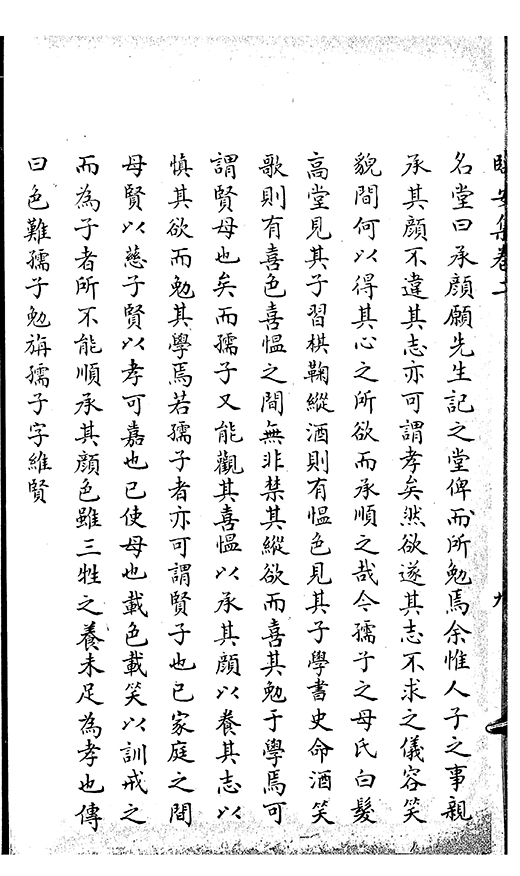 名堂曰承顔願先生記之堂俾而所勉焉余惟人子之事親
承其顔不違其志亦可謂孝矣然欲遂其志不求之儀容笑
貌間何以得其心之所欲而承順之哉今孺子之母氏白髮
高堂見其子習棋鞠縱酒則有慍色見其子學書史命酒笑
歌則有喜色喜慍之間無非禁其縱欲而喜其勉于學焉可
謂賢母也矣而孺子又能觀其喜慍以承其顔以養其志以
慎其欲而勉其學焉若孺子者亦可謂賢子也已家庭之間
母賢以慈子賢以孝可嘉也已使母也載色載笑以訓戒之
而為子者所不能順承其顔色雖三牲之養未足為孝也傳
曰色難孺子勉旃孺子字維賢